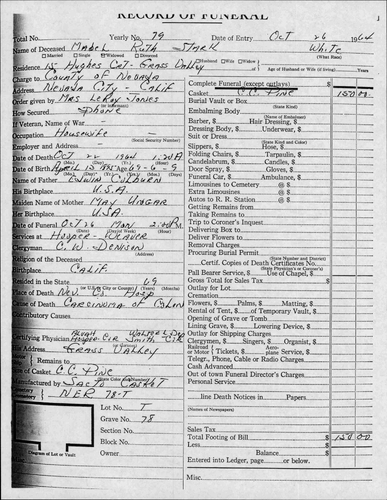 RECORD OF FUNERAL
Total No. Yearly No. 79 Date of Entry Oct 26 1964
Name of Deceased Mabel Ruth Stark White
Married Single Widowed Divorced (What Race)
Residence 15 Hughes Grass Valley Husband Wife Widow of
Age of Husband or Wife (if living) Years
Charge to County of Nevada Complete Funeral (except outlays) $
Address Nevada City - Calif Casket C.C. Pine 150 00
Order given by Mrs LeRoy Jones Burial Vault or Box
(State Kind)
How Secured Phone Embalming Body
If Veteran, Name of War Barber, $ Hair Dressing, $
Occupation Housewife Dressing Body, $ Underwear, $
Employer and Address Suit or Dress
Date of Death Oct 22 1964 1:20 A Slippers, $ Hose, $
Folding Chairs, $ Tarpaulin, $
Date of Birth April 13 Age 69-6-9 Candelabrum, $ Candles, $
Door Spray, $ Gloves, $
Name of Father Edwin Colburn Funeral Car, $ Ambulance, $
His Birthplace U.S.A. Limousines to Cemetery @ $
Extra Limousines @ $
Maiden Name of Mother May Ungar Autos to R. R. Station @ $
Her Birthplace USA. Getting Remains from
Date of Funeral Oct 26 Mon 2:00 P M Taking Remains to
Trip to Coroner's Inquest
Services at Hooper-Weaver Delivering Box to
Clergyman C. W. Denison Deliver Flowers to
Religion of the Deceased Removal Charges
Procuring Burial Permit
Birthplace Calif Certif. Copies of Death Certificates No.
Pall Bearer Service, $ Use of Chapel, $
Resided in the State 69 Gross Total for Sales Tax $
Place of Death Nev. Co. Hosp Outlay for Lot $
Cremation
Cause of Death Carcinoma of Colon Flowers, $ Palms, $ Matting, $
Contributory Causes Rental of Tent, $ of Temporary Vault, $
Opening of Grave or Tomb
Lining Grave, $ Lowering Device, $
Certifying Physician Outlay for Shipping Charges
Clergymen, $ Singers, $ Organist, $
His Address Grass Valley Railroad or Motor Tickets, $ Aeroplane Service, $
Remains to Telegr., Phone, Cable or Radio Charges
Cash Advanced
Size of C.C. Pine Out of town Funeral Director's Charges
Manufactured by Sacto Casket Personal Service
Cemetery NER 78-T
line Death Notices in Papers
(Names of Newspapers)
Lot No. T
Grave No. 78
Section No. Sales Tax
Total Footing of Bill $ 150 00
Block No. Less $
Owner Balance $
Entered into Ledger, page or below.
Diagram of Lot or Vault
Misc.